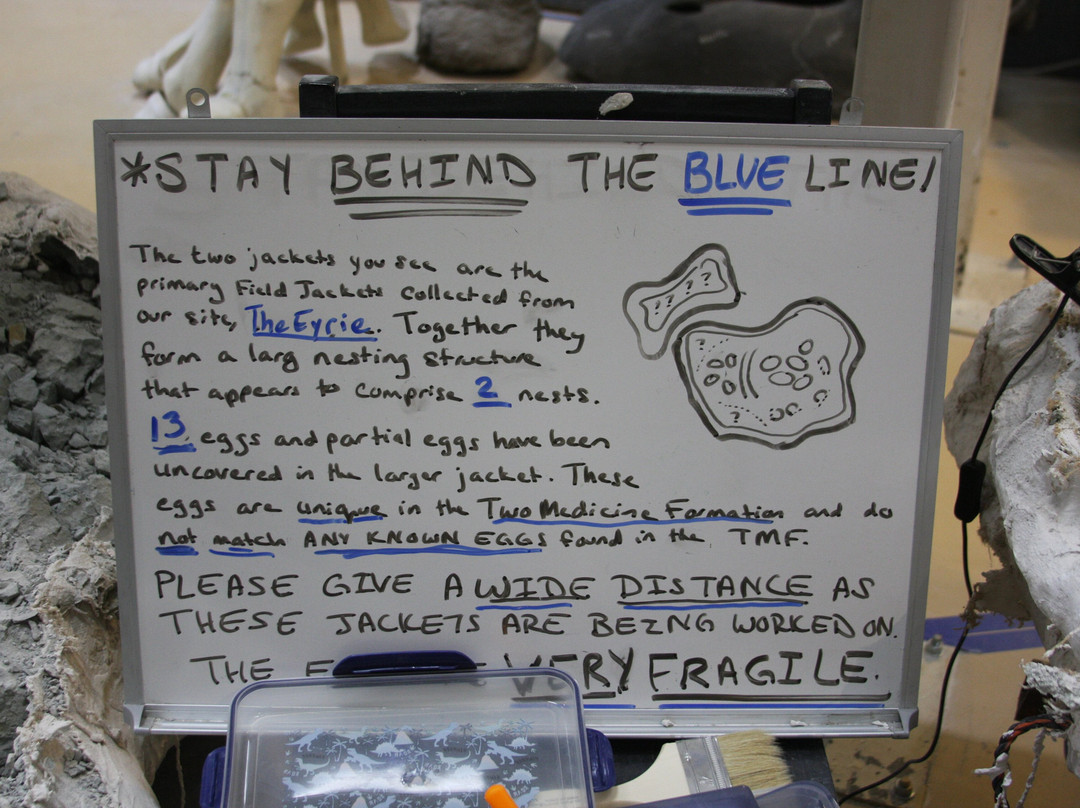 *STAY BEHIND THE BLUE LINE!
The two jackets you see are the
primary Field Jackets collected from
our site, The Eyrie. Together they
form a larg nesting structure
that appears to comprise 2 nests.
13 eggs and partial eggs have been
uncovered in the larger jacket. These
eggs are unique in the Two Medicine Formation and do
not match ANY KNOWN EGGS found in the TMF.
PLEASE GIVE A WIDE DISTANCE AS
THESE JACKETS ARE BEING WORKED ON.
THE VERY FRAGILE.
? ? ? ?
?
?